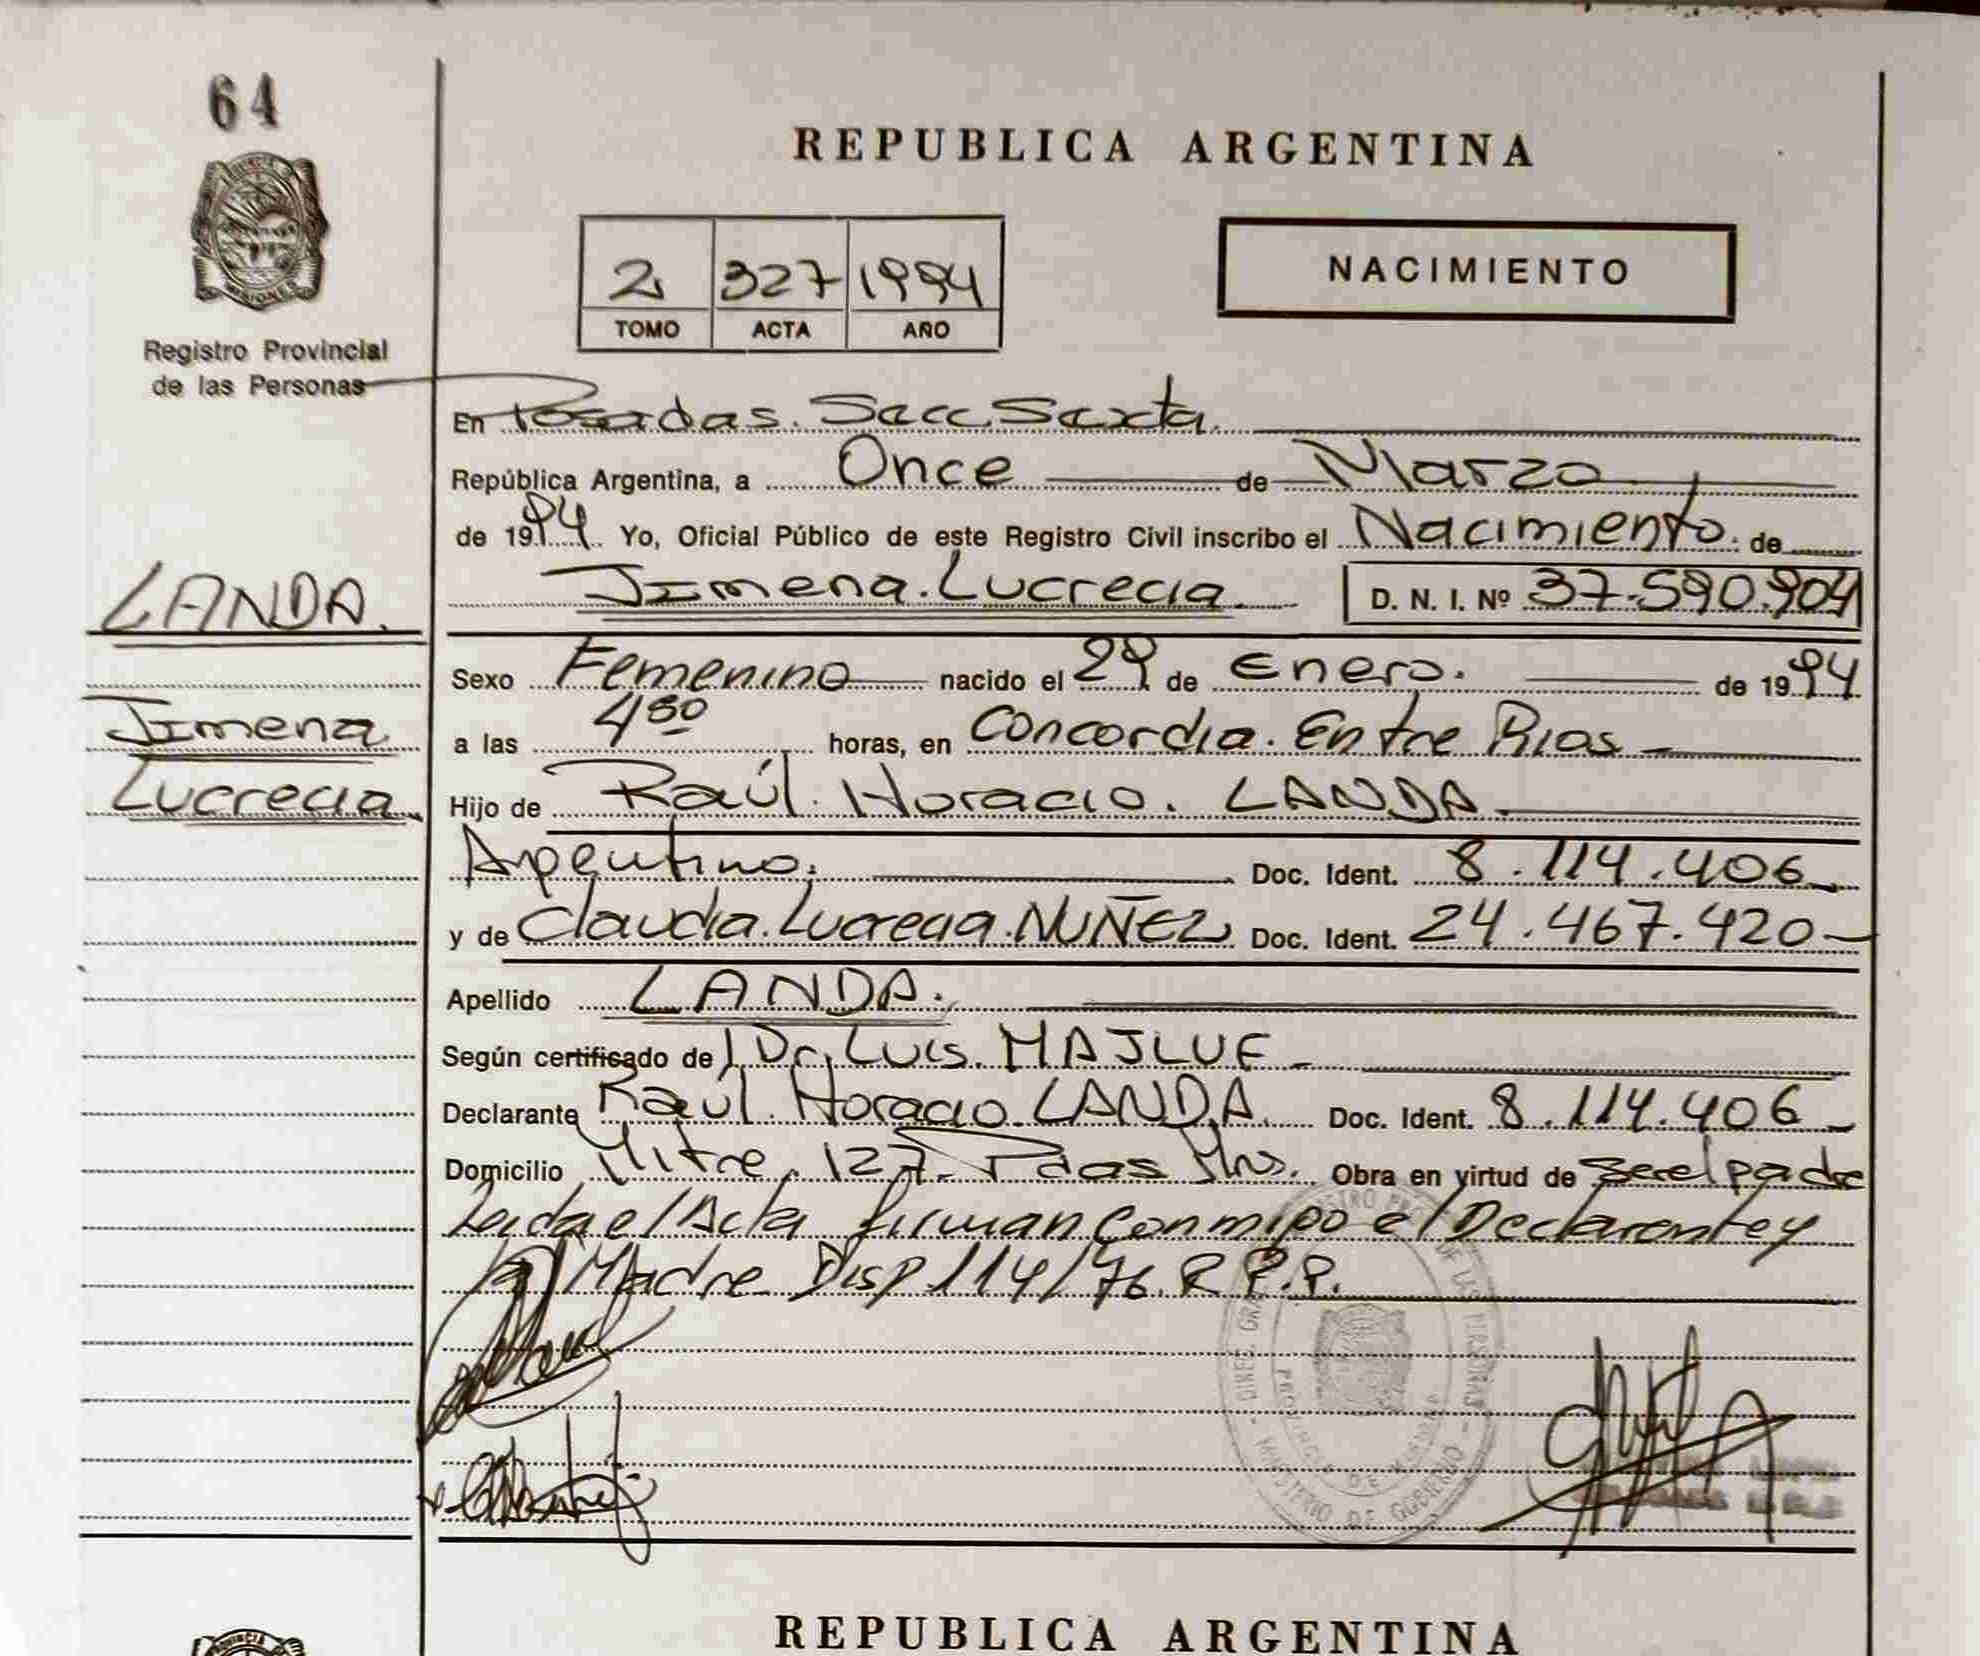 64
REPUBLICA ARGENTINA
2 327 1994
TOMO ACTA AÑO
NACIMIENTO
Registro Provincial
de las Personas
En Posadas. Secc. Sexta
República Argentina, a Once de Marzo
de 1994 Yo, Oficial Público de este Registro Civil inscribo el Nacimiento de
Jimena Lucrecia D. N. I. Nº 37.590.904
LANDA
Jimena
Lucrecia
Sexo Femenino nacido el 29 de Enero. de 1994
a las 4 30 horas, en Concordia. Entre Rios
Hijo de Raúl Horacio LANDA
Argentino. Doc. Ident. 8.114.406
y de Claudia Lucrecia NUÑEZ Doc. Ident. 24.467.420
Apellido LANDA.
Según certificado de Dr. Luis MAJLUF
Declarante Raúl Horacio LANDA Doc. Ident. 8.114.406
Domicilio Mitre 127 Pdas Mns. Obra en virtud de ser el padre
Leida el Acta firman conmigo el Declarante y
la Madre Disp 114/76. R.P.P.
REPUBLICA ARGENTINA